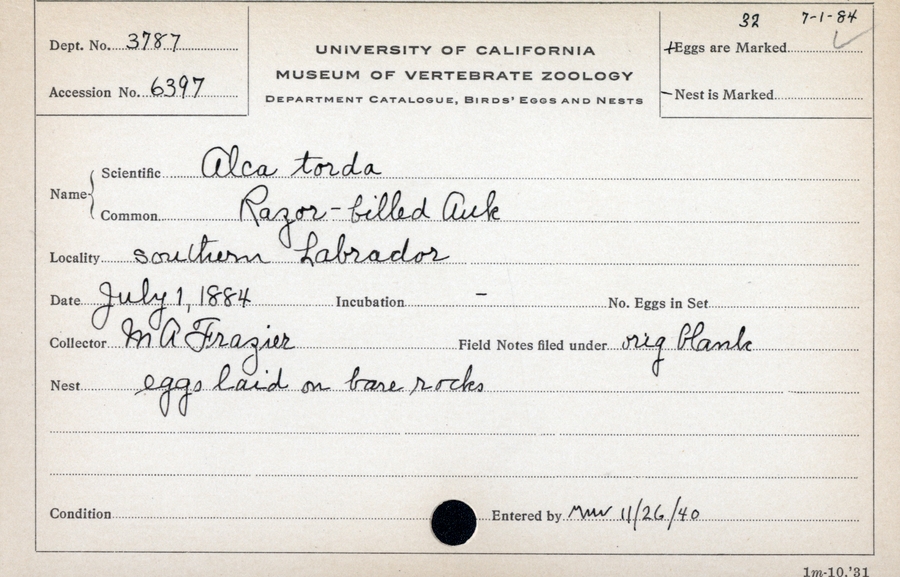 32 7-1-84
Dept. No. 3787
UNIVERSITY OF CALIFORNIA
+Eggs are Marked
MUSEUM OF VERTEBRATE ZOOLOGY
Accession No. 6397
DEPARTMENT CATALOGUE, BIRDS' EGGS AND NESTS
-Nest is Marked
Name
Scientific Alca torda
Common Razor-billed Auk
Locality southern Labrador
Date July 1, 1884 Incubation - No. Eggs in Set
Collector M A Frazier Field Notes filed under orig blank
Nest eggs laid on bare rocks
Condition Entered by 11/26/40
1m-10,'31